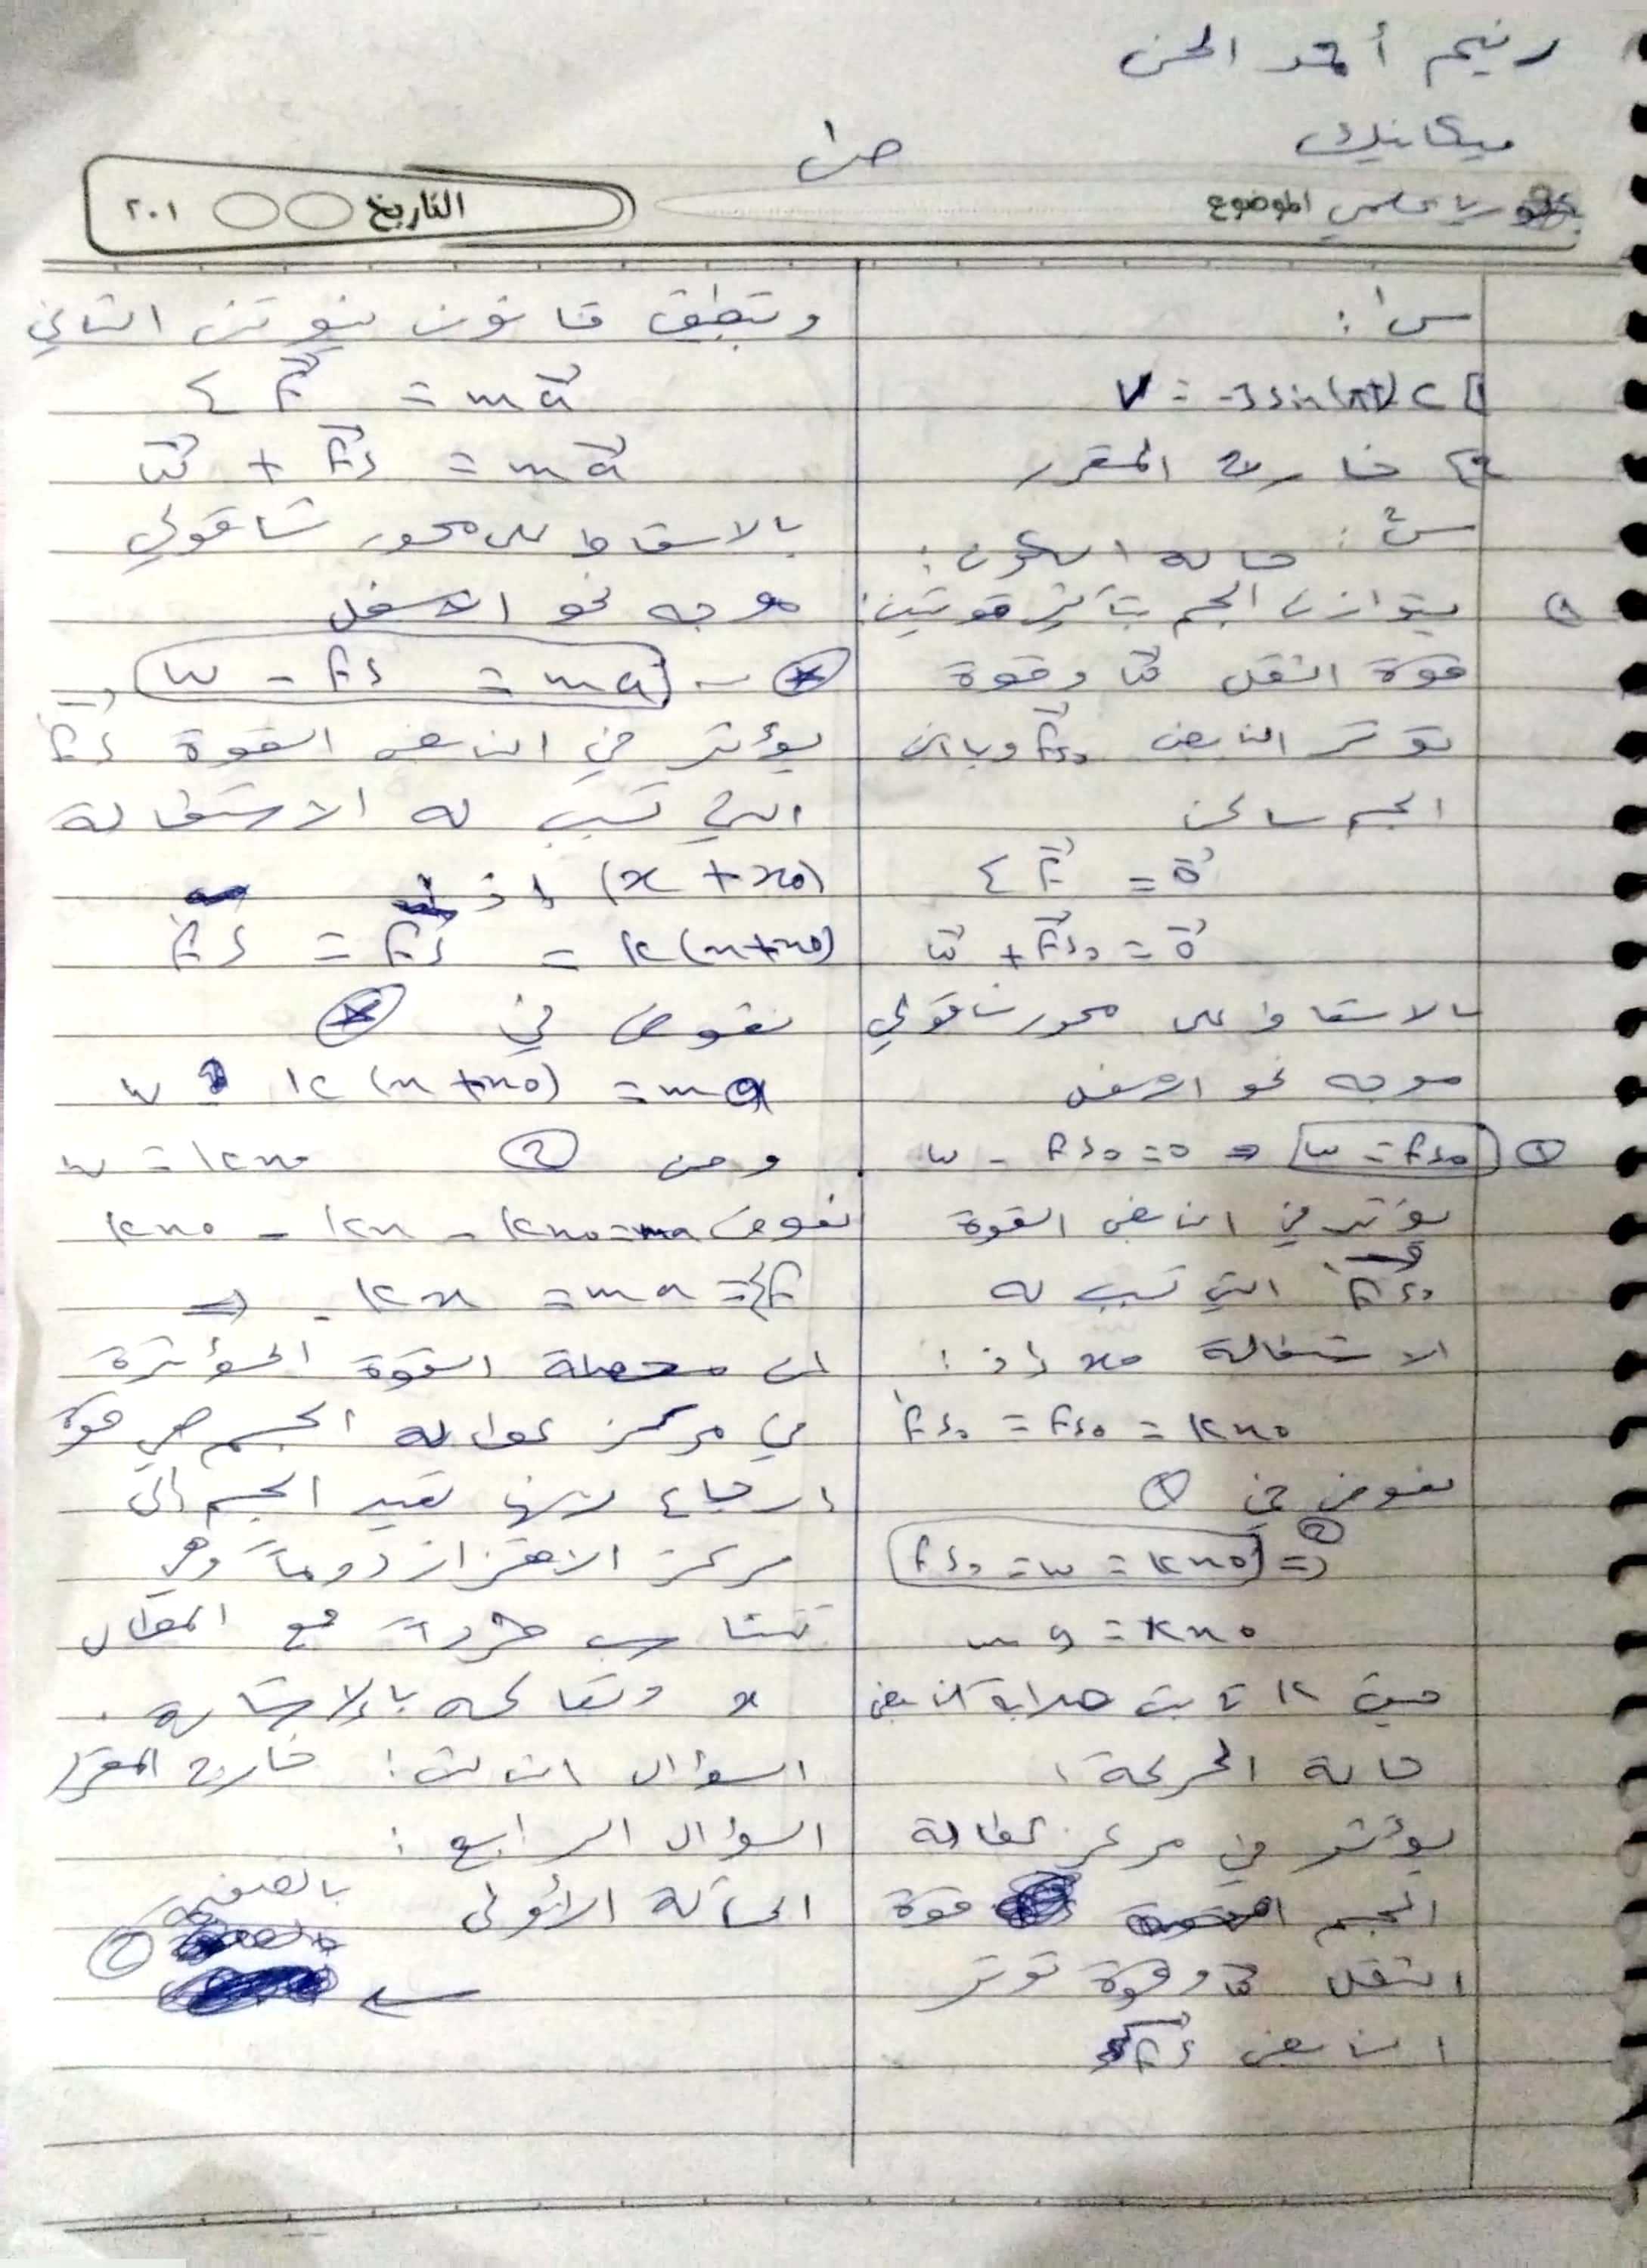 رنيم أحمد الحسن
ميكانيك
ص١
بكالوريا علمي الموضوع
التاريخ ٢٠١
س١:
v = -3sin(πt) C
خارج المقرر
س٢: حالة السكون:
يتوازن الجسم بتأثير قوتين:
قوة الثقل w⃗ وقوة
توتر النابض F⃗s₀ وبما ان
الجسم ساكن
Σ F⃗ = 0⃗
w⃗ + F⃗s₀ = 0⃗
بالاسقاط على محور شاقولي
موجه نحو الاسفل
w - Fs₀ = 0 ⇒ w = Fs₀ ①
يؤثر في النابض القوة
F⃗'s₀ التي تسبب له
الاستطالة x₀ إذ:
F's₀ = Fs₀ = kx₀
نعوض في ①
⇒ Fs₀ = w = kx₀ ②
mg = kx₀
حيث k ثابت صلابة النابض
حالة الحركة:
يؤثر في مركز عطالة
الجسم قوة
الثقل w⃗ وقوة توتر
النابض F⃗s
ونطبق قانون نيوتن الثاني
Σ F⃗ = ma⃗
w⃗ + F⃗s = ma⃗
بالاسقاط على محور شاقولي
موجه نحو الاسفل
w - Fs = ma
يؤثر في النابض القوة F⃗'s
التي تسبب له الاستطالة
(x + x₀) إذ
F's = Fs = k(x+x₀)
نعوض في
w - k(x+x₀) = ma
ومن ② w = kx₀
نعوض kx₀ - kx - kx₀ = ma
⇒ - kx = ma = ΣF
ان محصلة القوة المؤثرة
في مركز عطالة الجسم هي قوة
إرجاع لانها تعيد الجسم إلى
مركز الاهتزاز دوماً وهي
تتناسب طرداً مع المطال
x وتعاكسه بالإشارة.
السؤال الثالث: خارج المقرر
السؤال الرابع:
المسألة الأولى بالصفحة
②